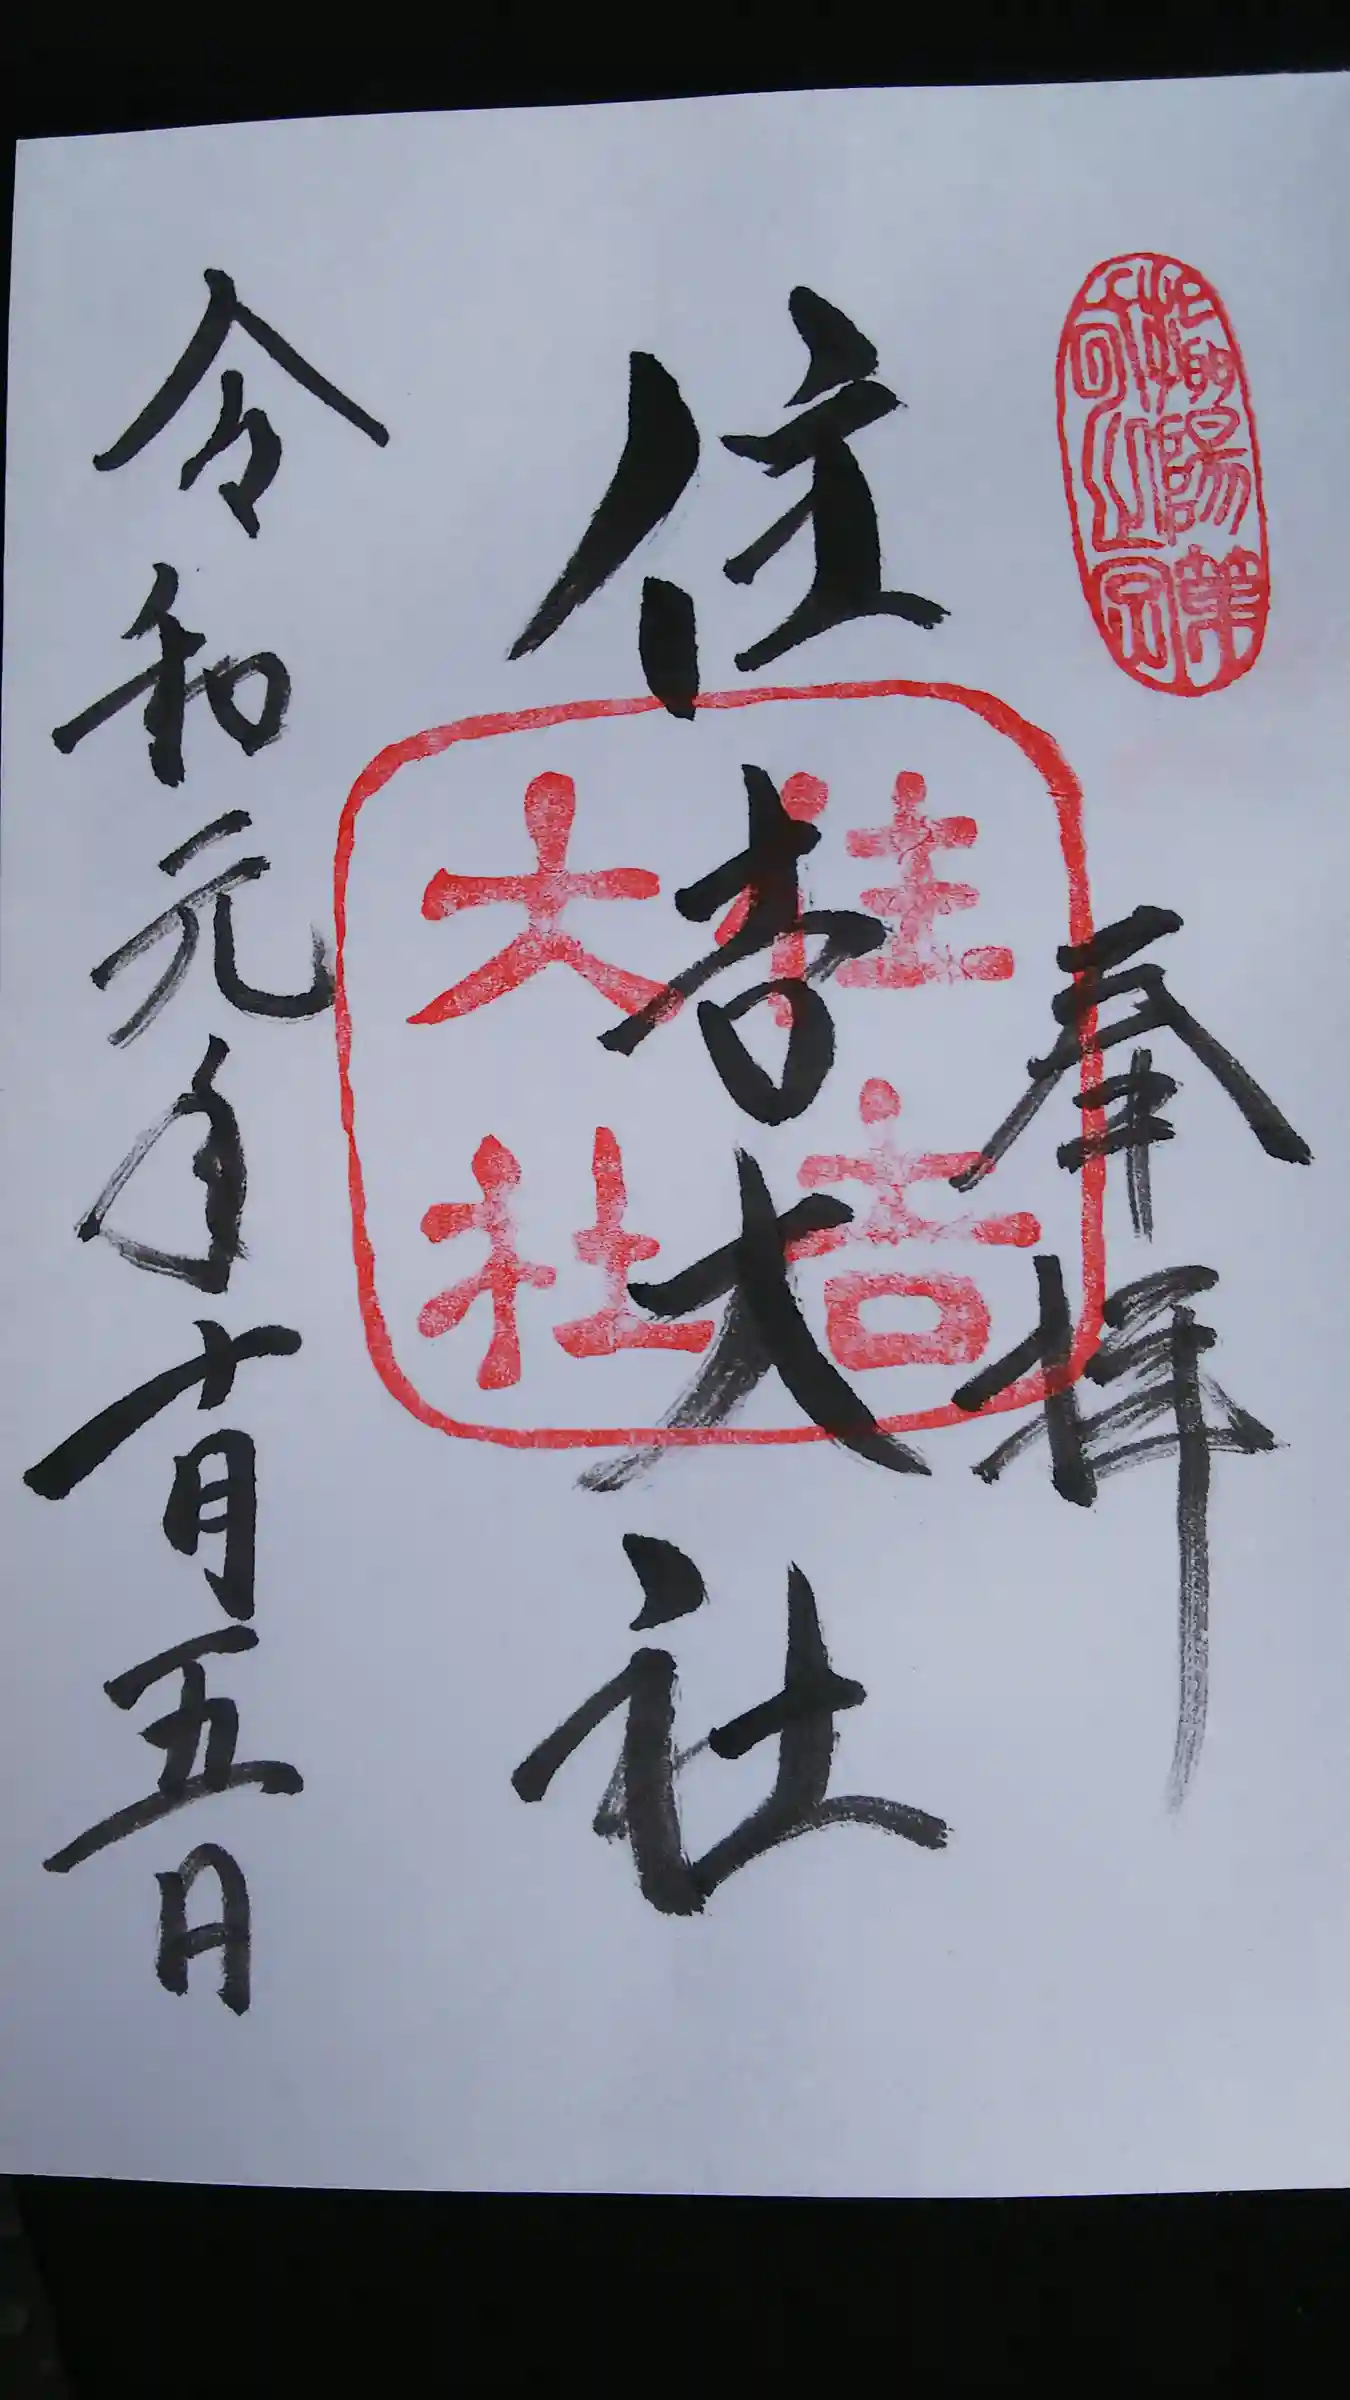 奉拝
住吉大社
住吉
大社
令和元年十月五日